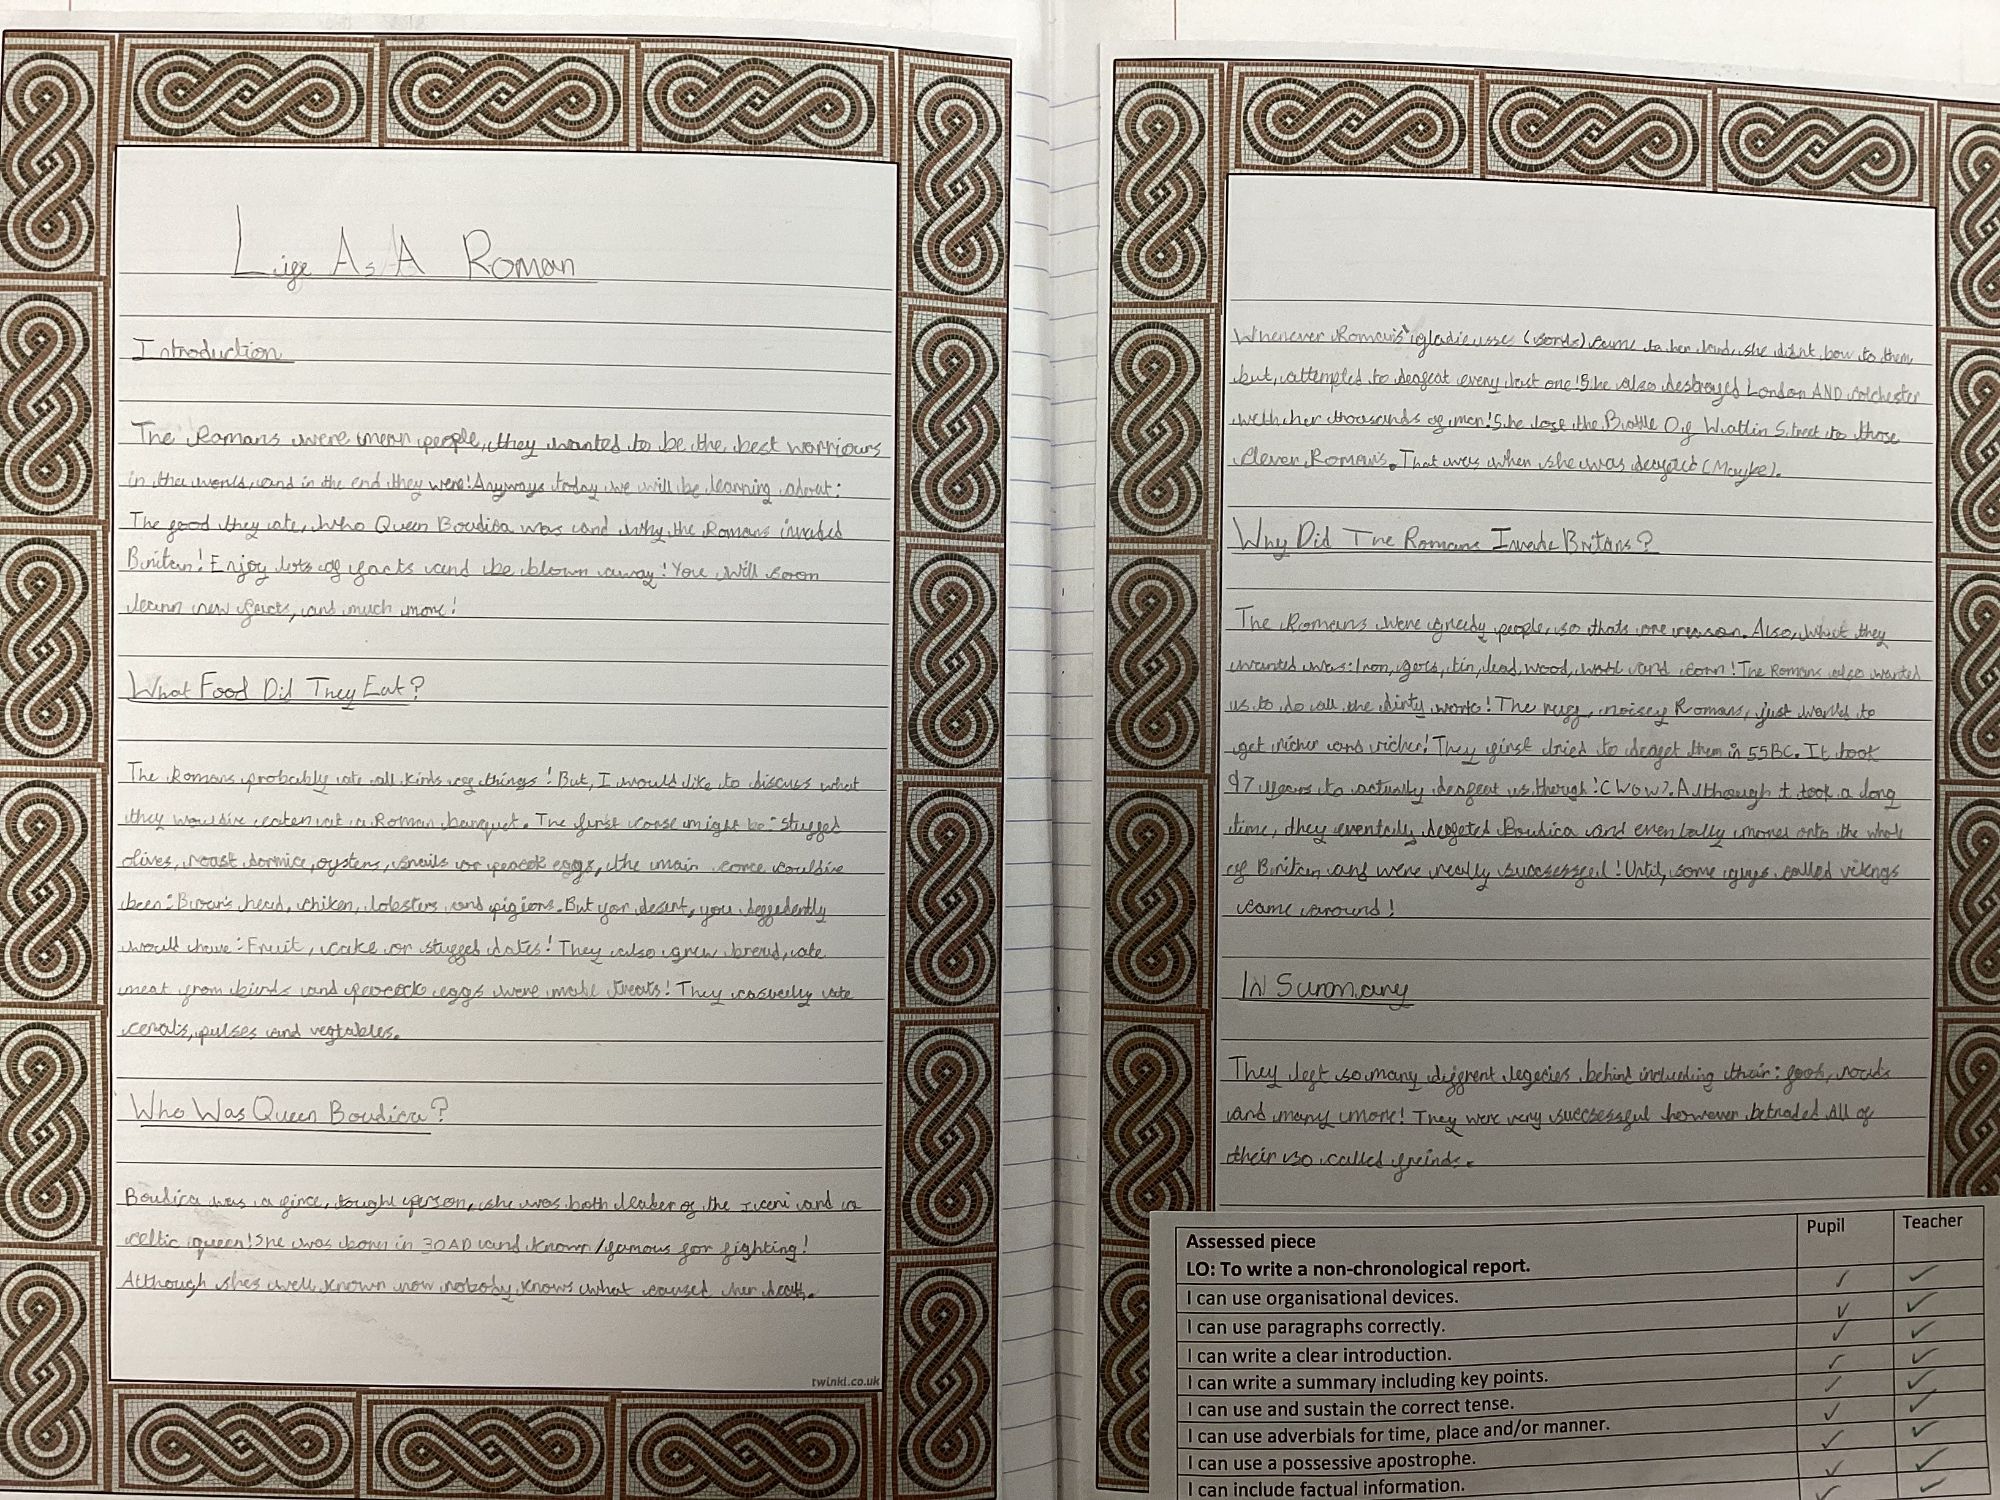 Life As A Roman
Introduction
The Romans were mean people, they wanted to be the best worriours
in the world, and in the end they were! Anyways today we will be learning about:
The food they ate, Who Queen Boudica was and why the Romans invaded
Britain! Enjoy lots of facts and be blown away! You will soon
learn new facts, and much more!
What Food Did They Eat?
The Romans probably ate all kinds of things! But, I would like to discuss what
they would've eaten at a Roman banquet. The first corse might be: stuffed
olives, roast dormice, oysters, snails or peacok eggs, the main corce could've
been: Boar's head, chiken, lobsters and pigions. But for desert, you deffedently
would have: Fruit, cake or stuffed dates! They also grew bread, ate
meat from birds and peacock eggs were treats! They casuelly ate
cerals, pulses and vegtables.
Who Was Queen Boudica?
Boudica was a firce, tought person, she was both leader of the Iceni and a
celtic queen! She was born in 30AD and known/famous for fighting!
Although shes well known now nobody knows what caused her death.
twinkl.co.uk
Whenever (sords) came to her land, she didnt bow to them
but, attempted to deafeat every last one! She also destroyed London AND colchester
with her thousands of men! She lose the Battle Of Watlin Street to those
clever Romans. That was when she was
Why Did The Romans Invade Britans?
The Romans were greedy people, so thats one reason. Also, what they
wanted was: Iron, tin, lead, wood, and corn! The Romans also wanted
us to do all the dirty work! The noisey Romans, just wanted to
get richer and richer! They first tried to deafet them in 55BC. It took
97 years to actually deafeat us though! (Wow). Although it took a long
time, they eventally Boudica and even tally moved onto the whole
of Britain and were really sucsessfull! Until, some guys called vikings
came around!
In Summary
They left so many diffrent legecies behind including their: food, roads
and many more! They were very successful however betraded all of
their so called freinds.
Assessed piece
Pupil
Teacher
LO: To write a non-chronological report.
I can use organisational devices.
I can use paragraphs correctly.
I can write a clear introduction.
I can write a summary including key points.
I can use and sustain the correct tense.
I can use adverbials for time, place and/or manner.
I can use a possessive apostrophe.
I can include factual information.